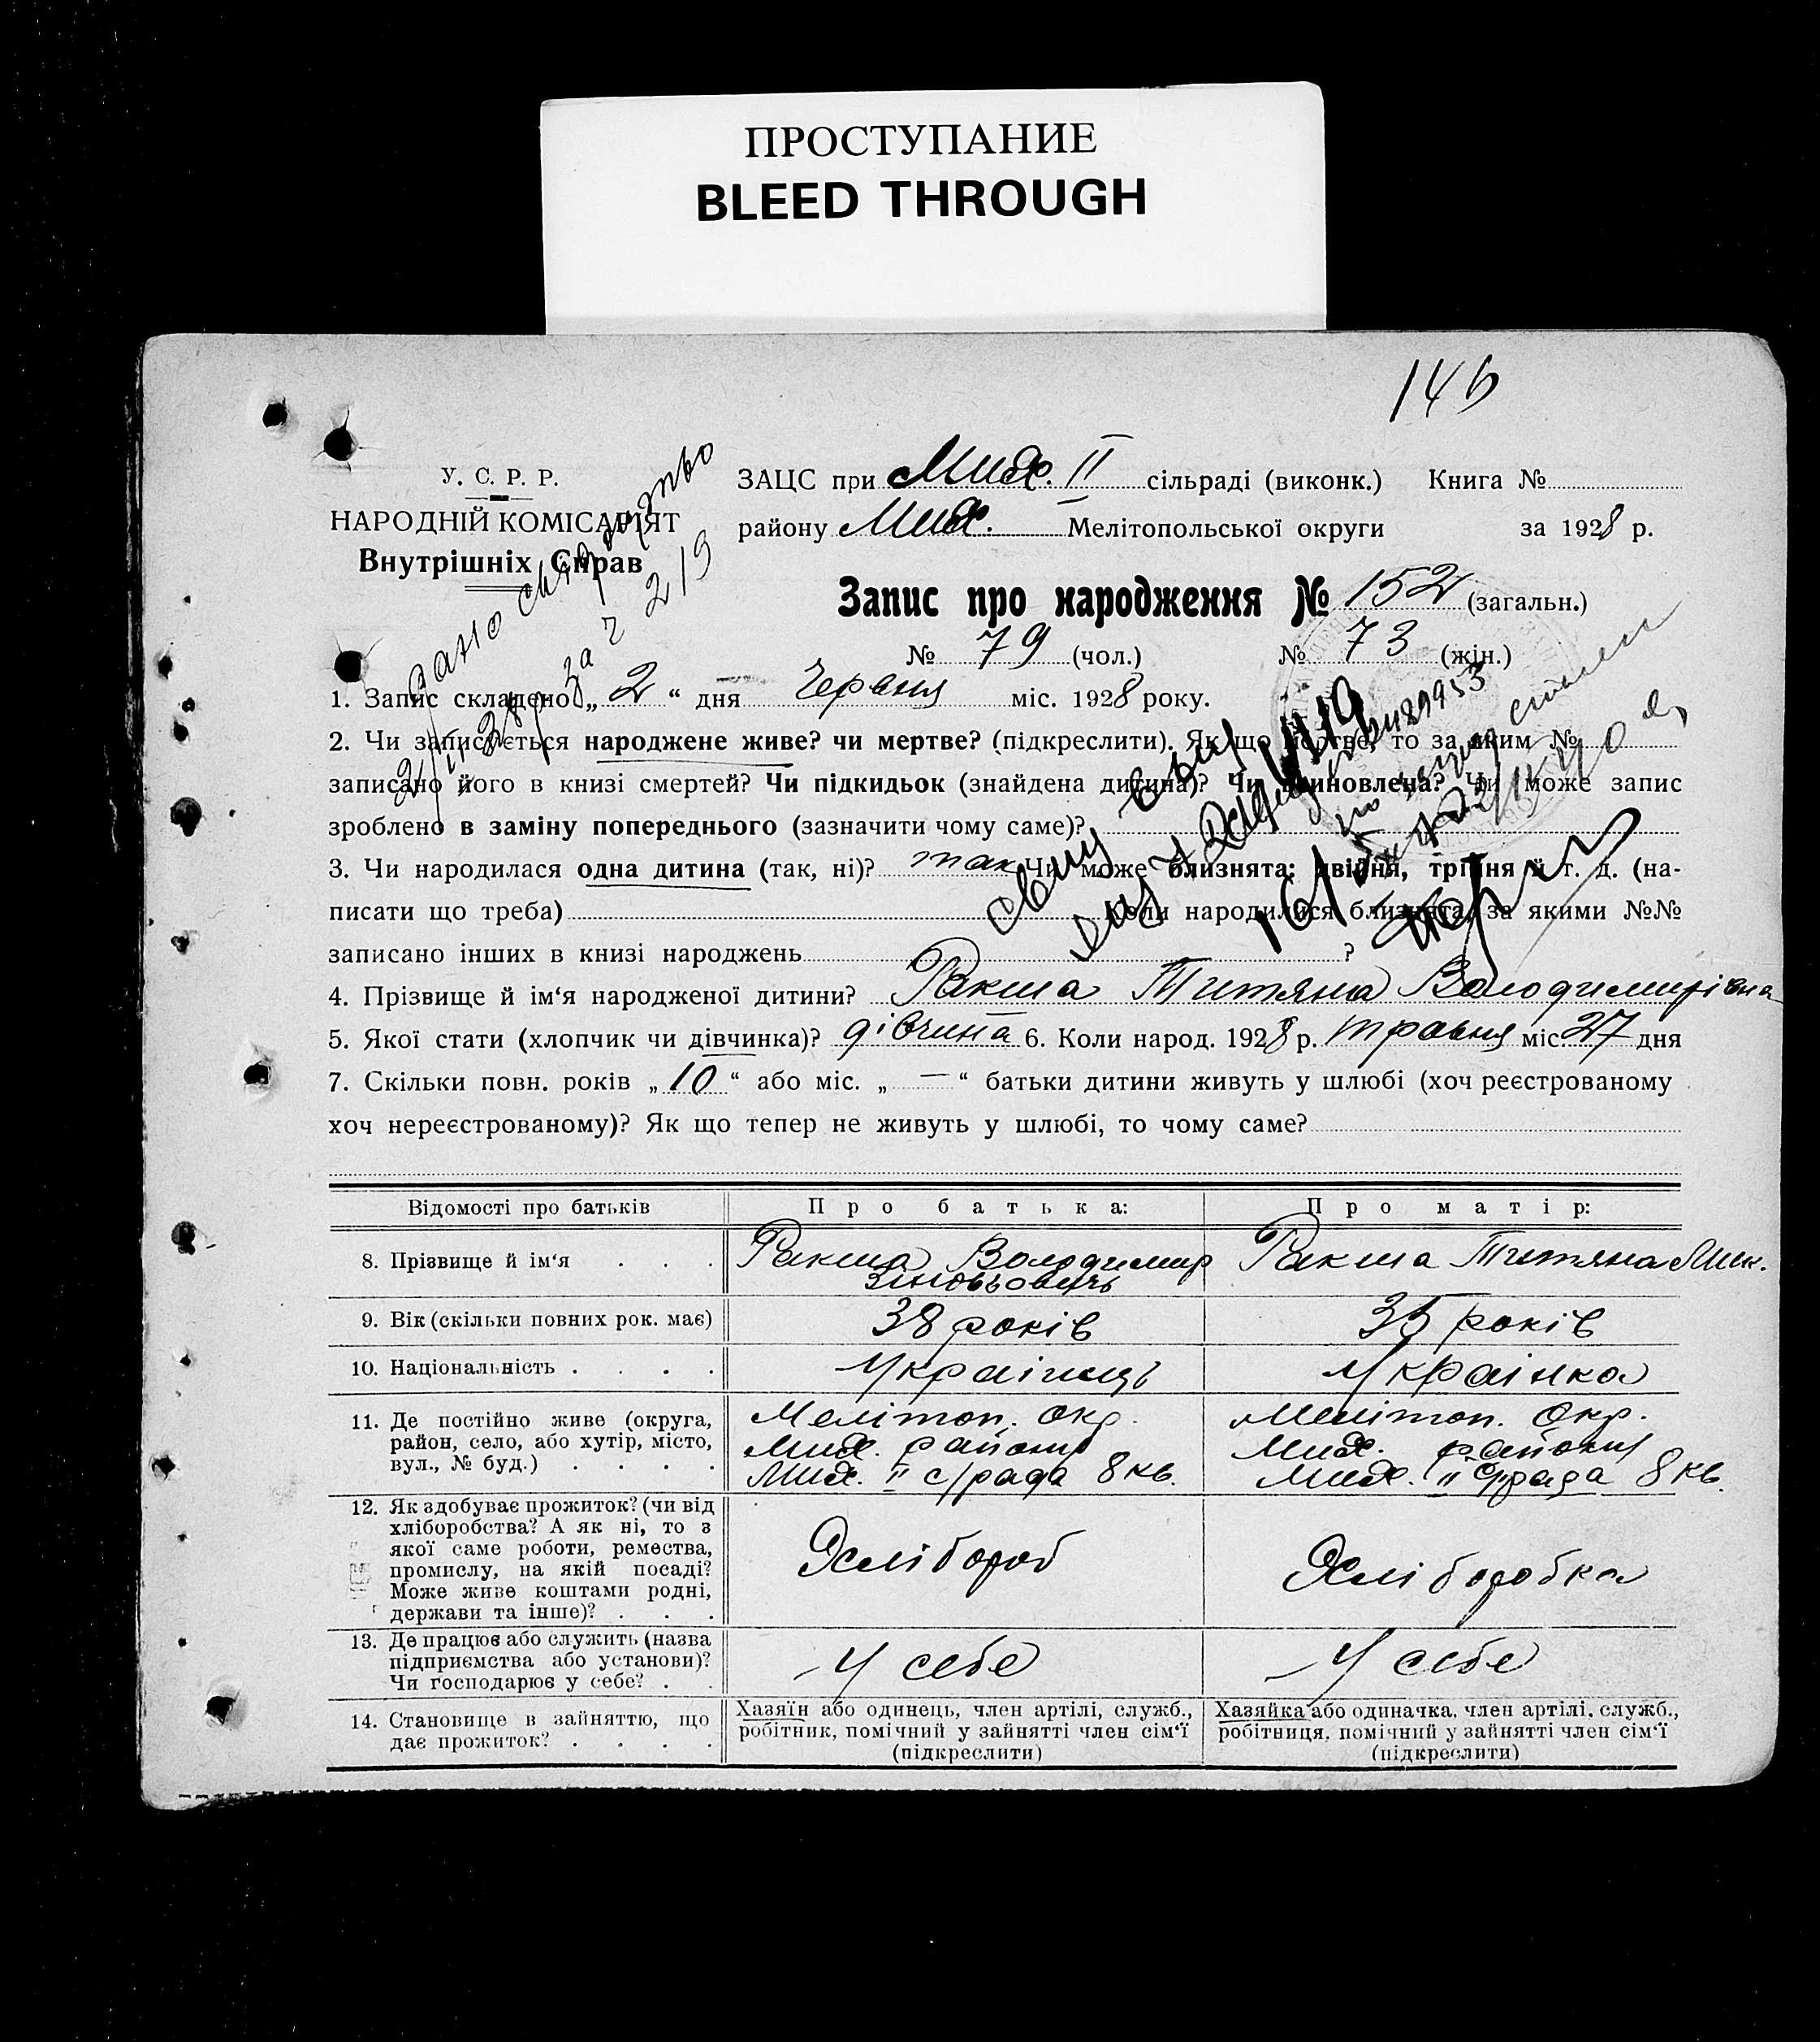 ПРОСТУПАНИЕ
BLEED THROUGH
146
У. С. Р. Р.
НАРОДНІЙ КОМІСАРІЯТ
Внутрішніх Справ
ЗАЦС при Мих. II сільраді (виконк.) Книга №
району Мих. Мелітопольської округи за 1928 р.
Запис про народження № 152 (загальн.)
№ 79 (чол.) № 73 (жін.)
за № 219
1. Запис складено „ 2 “ дня Червня міс. 1928 року.
2. Чи записується народжене живе? чи мертве? (підкреслити). Як що мертве, то за яким №
записано його в книзі смертей? Чи підкидьок (знайдена дитина)? Чи усиновлена? Чи може запис
зроблено в заміну попереднього (зазначити чому саме)?
3. Чи народилася одна дитина (так, ні)? так Чи може близнята: двійня, трійня й т. д. (на-
писати що треба) Коли народилися близнята, за якими №№
записано інших в книзі народжень ?
4. Прізвище й ім‘я народженої дитини? Ракша Титяна Володимирівна
5. Якої стати (хлопчик чи дівчинка)? дівчина 6. Коли народ. 1928 р. травня міс. 27 дня
7. Скільки повн. років „ 10 “ або міс. „ — “ батьки дитини живуть у шлюбі (хоч реєстрованому
хоч нереєстрованому)? Як що тепер не живуть у шлюбі, то чому саме?
Відомості про батьків Про батька: Про матір:
8. Прізвище й ім‘я . . . Ракша Володимир Зіновьовичь Ракша Титяна Мик.
9. Вік (скільки повних рок. має) 38 років 35 років
10. Національність . . . . Українець Українка
11. Де постійно живе (округа, Меліт­оп. окр. Мелітоп. Окр.
район, село, або хутір, місто, Мих. району Мих. району
вул., № буд.) . . . . Мих. II с/рада 8 кв. Мих. II с/рада 8 кв.
12. Як здобуває прожиток? (чи від
хліборобства? А як ні, то з
якої саме роботи, ремества, Хлібороб Хліборобка
промислу, на якій посаді?
Може живе коштами родні,
держави та інше)? . . .
13. Де працює або служить (назва
підприємства або установи)? У себе У себе
Чи господарює у себе? . .
14. Становище в зайняттю, що Хазяїн або одинець, член артілі, служб., Хазяйка або одиначка, член артілі, служб.,
дає прожиток? . . . . робітник, помічний у зайнятті член сім‘ї робітниця, помічний у зайнятті член сім‘ї
(підкреслити) (підкреслити)